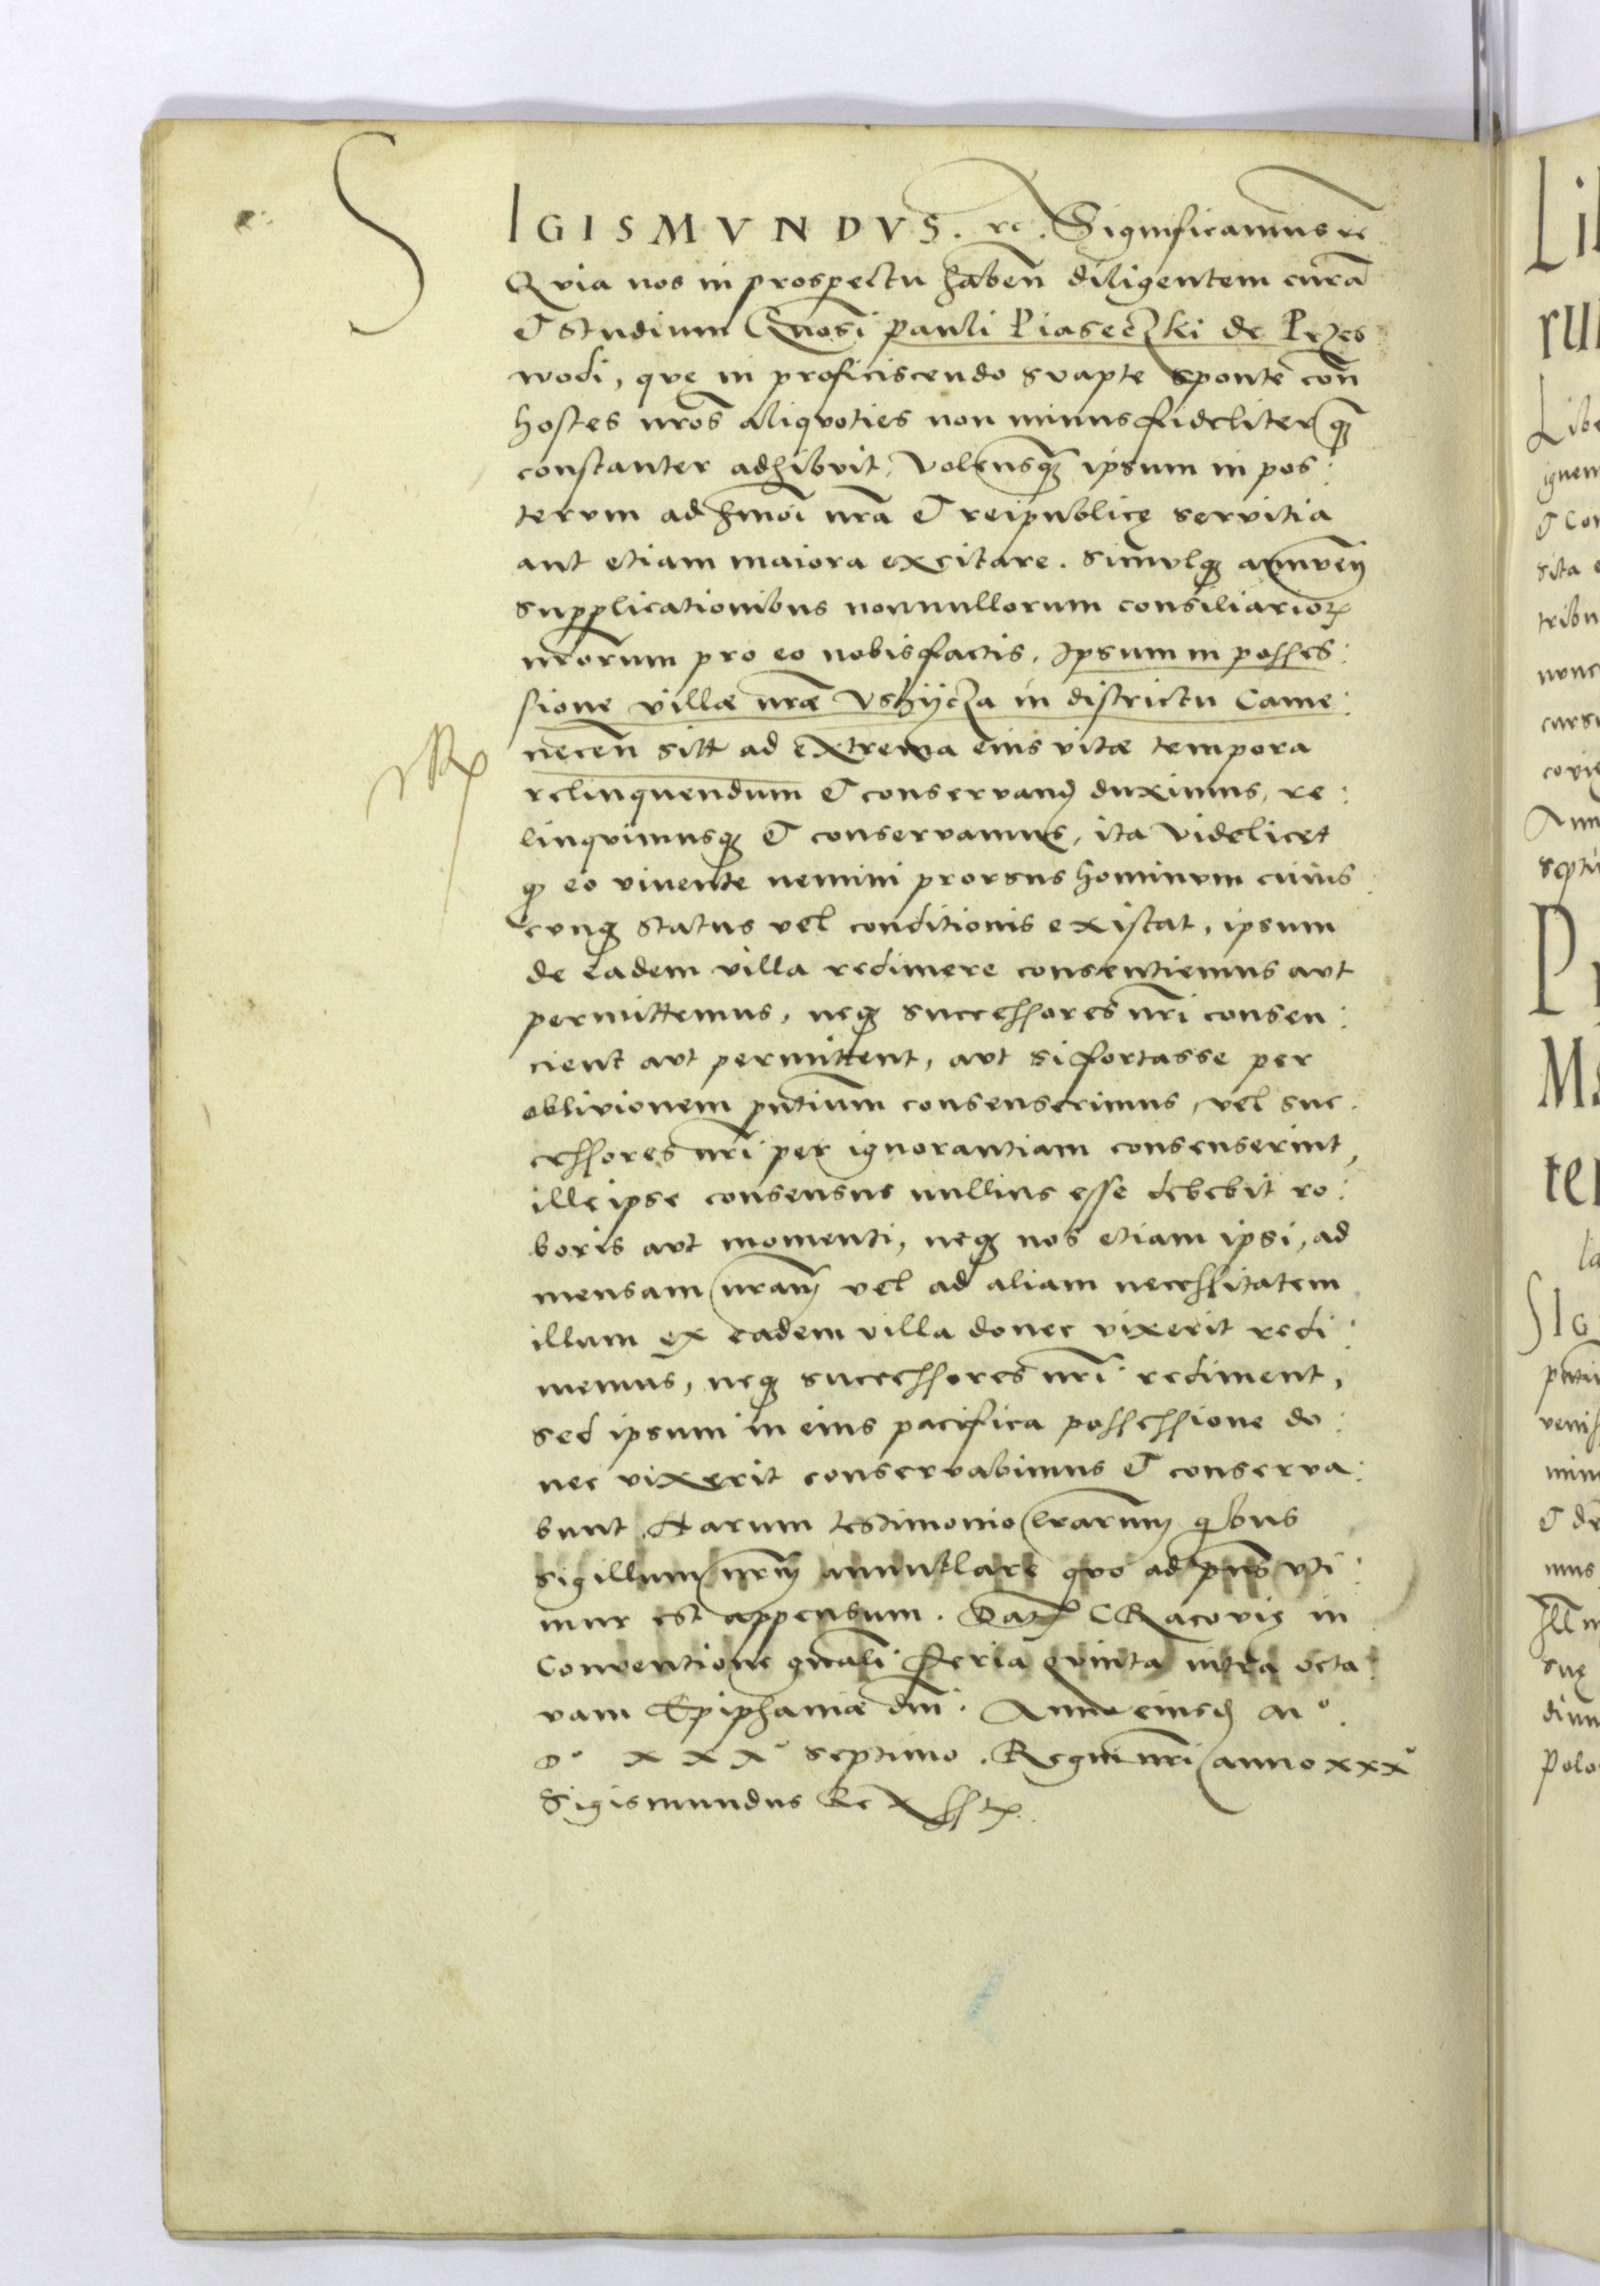 SIGISMVNDVS. rc. Significamus rc
Qvia nos in prospectu haben̄ diligentem curā
et studium Gn̄osi pauli Piaseczki de Przes
wodi, quę in proficiscendo svapte sponte con̄
hostes nr̄os aliqvoties non minus fideliter qꝫ
constanter adhibvit, Volensqꝫ ipsum in pos:
tervm ad hm̄oi nr̄a et reipublicę servitia
aut etiam maiora excitare. simvlqꝫ annven̄
supplicationibus nonnullorum consiliarioꝝ
nr̄orum pro eo nobis factis, Ipsum in posses:
sione villæ nr̄æ Vshijcza in districtu Came:
necen̄ sitt ad extrema eius vitæ tempora
relinquendum et conservand̄ duximus, re:
linqvimusqꝫ et conservamus, ita Videlicet
qꝫ eo vivente nemini prorsus hominvm cuius
cvnqꝫ status vel conditionis existat, ipsum
de eadem villa redimere consentiemus avt
permittemus, neqꝫ successores nr̄i consen:
cient avt permittent, avt si fortasse per
oblivionem pn̄tium consenserimus, vel suc
cessores nr̄i per ignorantiam consenserint,
ille ipse consensus nullius esse debebit ro:
boris avt momenti, neqꝫ nos etiam ipsi, ad
mensam nr̄am vel ad aliam necessitatem
illum ex eadem villa donec vixerit redi:
memus, neqꝫ successores nr̄i rediment,
sed ipsum in eius pacifica possessione do:
nec vixerit conservabimus et conserva:
bunt Harum testimonio lr̄arum qꝫbus
sigillum nr̄m annulare qvo ad pn̄s vti:
mur est appensum. Datꝫ CRacovię in
Conventione gn̄ali feria qvinta intra octa
vam Epiphaniæ dn̄i. Anno eiusd̄ M°.
D° XXX° septimo. Regni nr̄i anno xxx°
Sigismundus Rex sstꝫ.